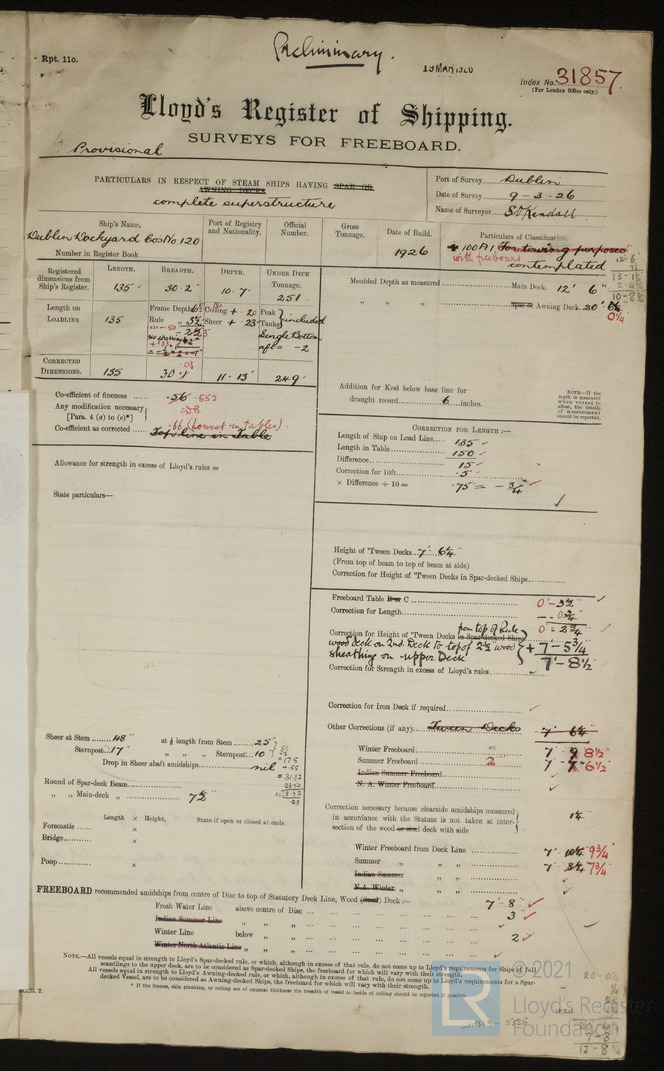 Preliminary.
Rpt. 11c.
19 MAR 1926
Index No. 31857.
(For London Office only.)
Lloyd's Register of Shipping.
SURVEYS FOR FREEBOARD.
Provisional
PARTICULARS IN RESPECT OF STEAM SHIPS HAVING SPAR OR
AWNING DECKS
complete superstructure
Port of Survey Dublin
Date of Survey 9-3-26
Name of Surveyor
Ship's Name.
Port of Registry and Nationality.
Official Number.
Gross Tonnage.
Date of Build.
Particulars of Classification.
Dublin Dockyard Co's No. 120
1926
+ 100A1 For towing purposes
with freeboard
contemplated
Number in Register Book
Registered dimensions from Ship's Register.
LENGTH. BREADTH. DEPTH. UNDER DECK TONNAGE.
135 30.2 10.7 251
Length on LOADLINE 135
Frame Depth
Rule
Ceiling + .20
Sheer + .23
Peak Tanks included
Single Bottom
aft = -2
CORRECTED DIMENSIONS. 135 30.1 11.13 249
Co-efficient of fineness .56 .552
Any modification necessary
[Para. 4 (a) to (e)*]
Co-efficient as corrected .66 (Lowest in tables)
Top line in Table
Allowance for strength in excess of Lloyd's rules =
State particulars—
Moulded Depth as measured Main Deck. 12' 6"
" " " Spar or Awning Deck. 20'
Addition for Keel below base line for
draught record 6 inches.
NOTE.—If the depth is measured when vessel is afloat, the details of measurement should be reported.
CORRECTION FOR LENGTH:—
Length of Ship on Load Line 135
Length in Table 150
Difference 15
Correction for 10ft. .5
× Difference ÷ 10 = .75 = - 3/4"
Height of 'Tween Decks 7' 6¼"
(From top of beam to top of beam at side)
Correction for Height of 'Tween Decks in Spar-decked Ships
Freeboard Table B or C 0'-3½"
Correction for Length - 0¾"
from top of Rule 0 = 2¾"
Correction for Height of 'Tween Decks in Spar-decked Ships
wood deck on 2nd Deck to top of 2½" wood + 7'-5¾"
sheathing on upper Deck 7'-8½
Correction for Strength in excess of Lloyd's rules
Correction for Iron Deck if required
Other Corrections (if any) Tween Decks 7' 6¼"
Winter Freeboard 7 8½"
Summer Freeboard 2 7 6½"
Indian Summer Freeboard
N. A. Winter Freeboard
Correction necessary because clearside amidships measured
in accordance with the Statute is not taken at inter-
section of the wood or steel deck with side 1¼"
Winter Freeboard from Deck Line 7' 10¼" 9¾"
Summer " " " 7' 8¼" 7¾"
Indian Summer " "
N.A. Winter " "
Sheer at Stem 48" at ⅛ length from Stem 25"
Sternpost 17" " " " Sternpost 10"
Drop in Sheer abaft amidships nil
Round of Spar-deck Beam
" " Main-deck " 7½"
Length × Height. State if open or closed at ends.
Forecastle ×
Bridge ×
Poop ×
FREEBOARD recommended amidships from centre of Disc to top of Statutory Deck Line, Wood (Steel) Deck:— 7' 8"
Fresh Water Line above centre of Disc 3
Indian Summer Line
Winter Line below " 2
Winter North Atlantic Line " "
NOTE.—All vessels equal in strength to Lloyd's Spar-decked rule, or which, although in excess of that rule, do not come up to Lloyd's requirements for Ships of full
scantlings to the upper deck, are to be considered as Spar-decked Ships, the freeboard for which will vary with their strength.
All vessels equal in strength to Lloyd's Awning-decked rule, or which, although in excess of that rule, do not come up to Lloyd's requirements for a Spar-
decked Vessel, are to be considered as Awning-decked Ships, the freeboard for which will vary with their strength.
* If the frames, skin planking, or ceiling are of unusual thickness the breadth of vessel to inside of ceiling should be reported if possible.
P.T.O.
LR
© 2021
Lloyd's Register
Foundation